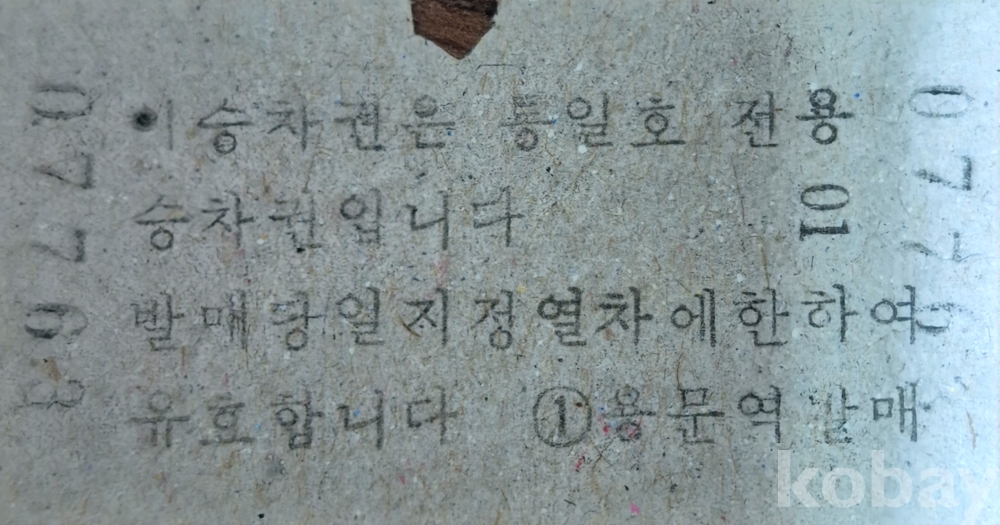 이 승차권은 통일호 전용
승차권입니다 01
발매당일지정열차에한하여
유효함니다 ①용문역발매
0776
kobay